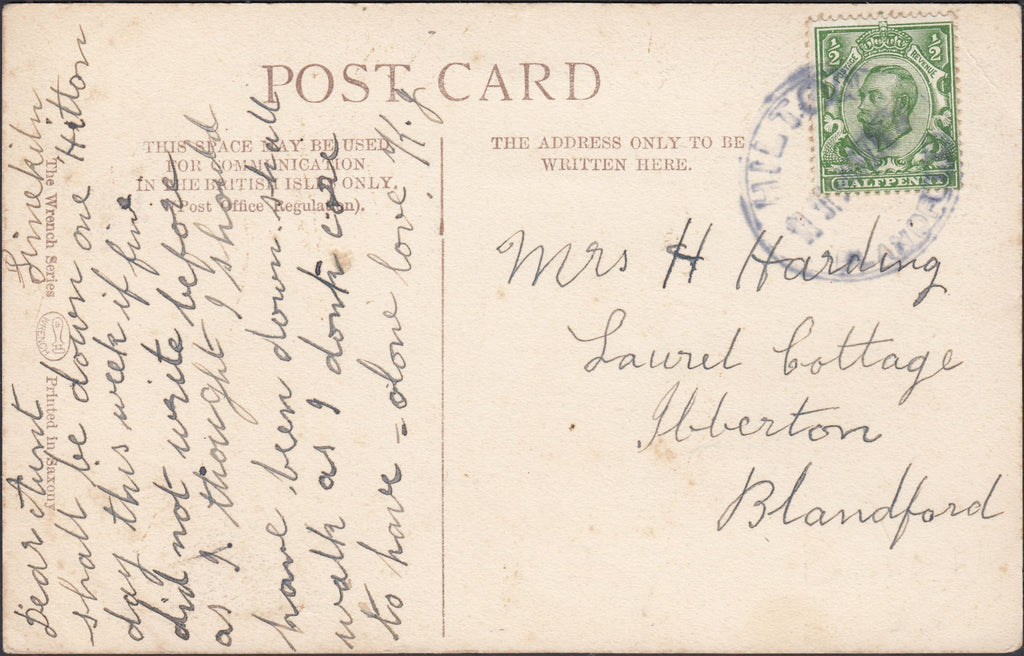 POST CARD
THIS SPACE MAY BE USED
FOR COMMUNICATION
IN THE BRITISH ISLES ONLY.
(Post Office Regulation).
THE ADDRESS ONLY TO BE
WRITTEN HERE.
The Wrench Series
WRENCH
Printed in Saxony
POSTAGE REVENUE
1/2 1/2
HALFPENNY
HILTON
Limekiln
Hilton
Dear Aunt
shall be down one
day this week if fine
did not write before
as I thought I should
have been down. shall
walk as I dont care
to have
love
Mrs H Harding
Laurel Cottage
Ibberton
Blandford